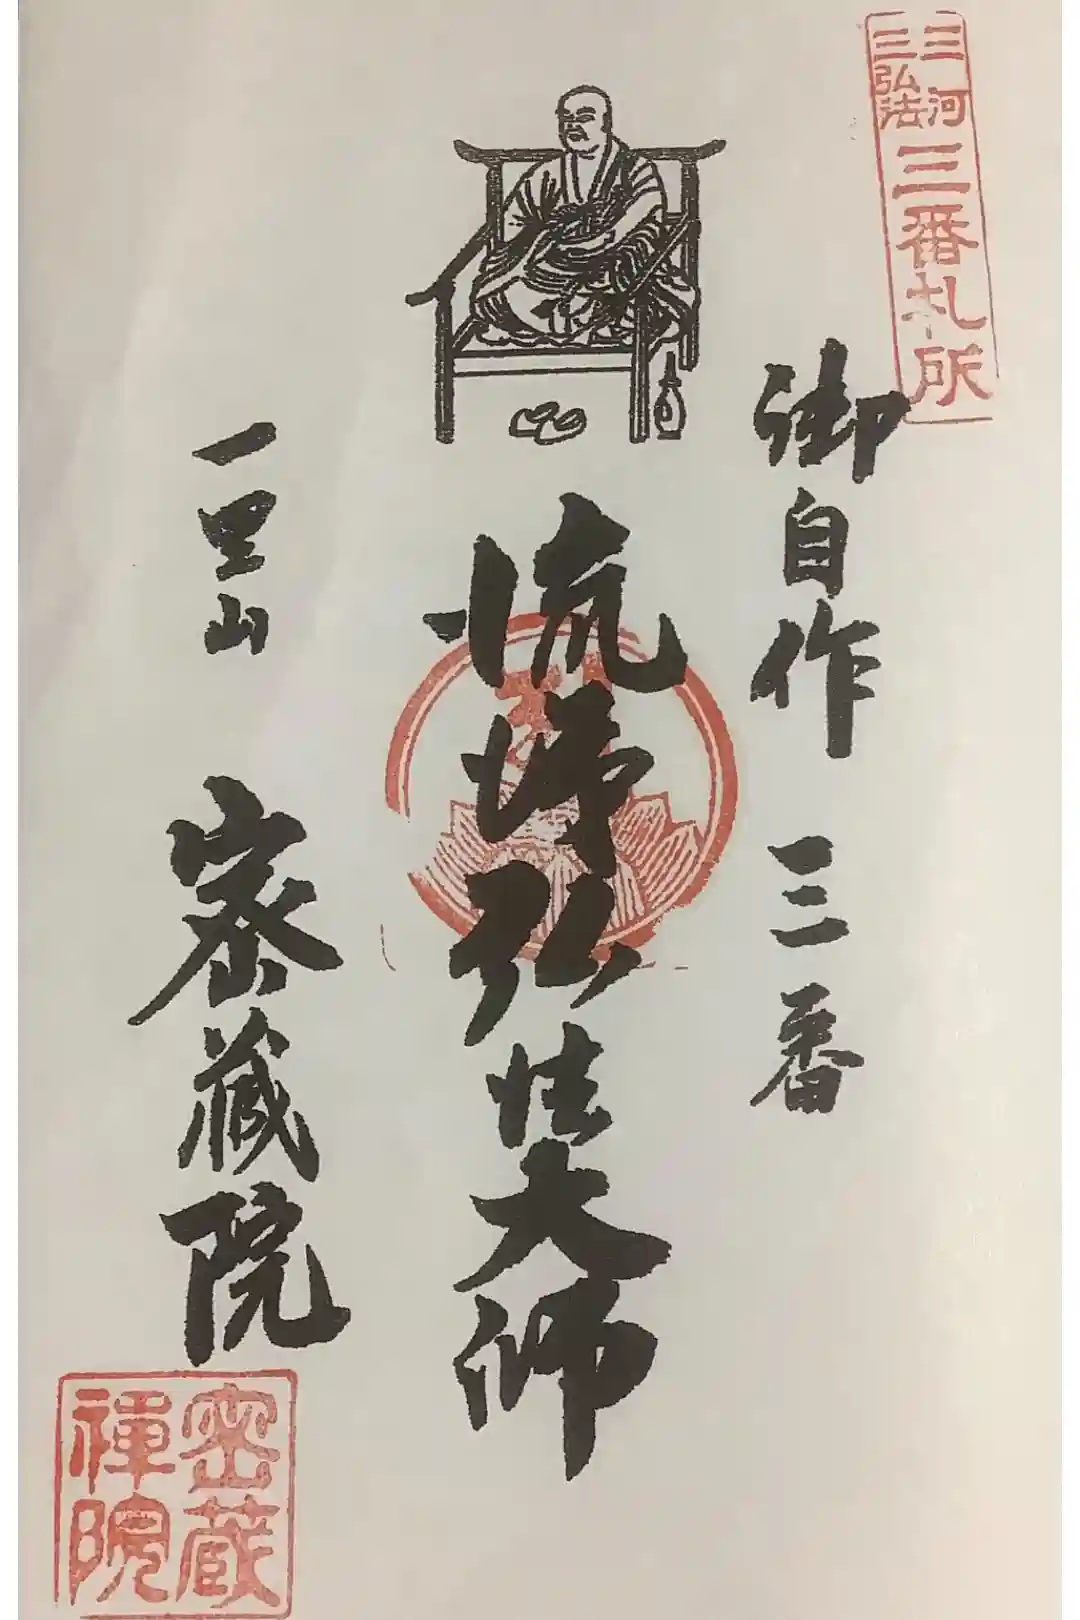 三河
三弘法
三番札所
御自作 三番
流涕弘法大師
一里山 密蔵院
密蔵
禅院